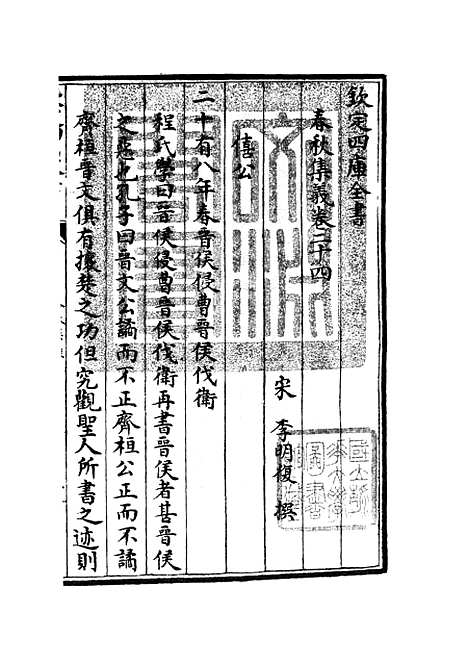 欽定四庫全書
春秋集義卷二十四
宋 李明復 撰
僖公
二十有八年春晉侯侵曹晉侯伐衛
程氏學曰晉侯侵曹晉侯伐衛再書晉侯者甚晉侯
之惡也孔子曰晉文公譎而不正齊桓公正而不譎
齊桓晉文俱有攘楚之功但究觀聖人所書之迹則